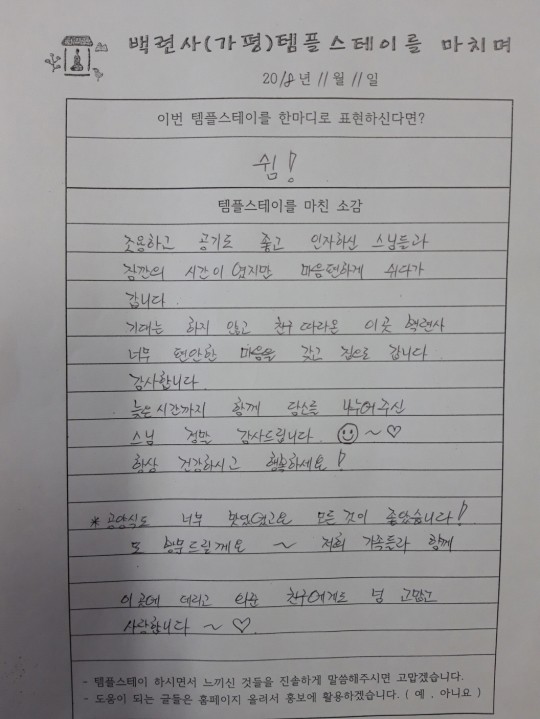 백련사(가평)템플스테이를 마치며
2018년 11월 11일
이번 템플스테이를 한마디로 표현하신다면?
쉼!
템플스테이를 마친 소감
조용하고 공기도 좋고 인자하신 스님들과
짐깐의 시간이 였지만 마음편하게 쉬다가
갑니다
기대는 하지 않고 친구 따라온 이곳 백련사
너무 편안한 마음을 갖고 집으로 갑니다
감사합니다.
늦은시간까지 함께 담소를 나누어주신
스님 정말 감사드립니다. ☺~♡
항상 건강하시고 행복하세요!
* 공양식도 너무 맛있였고요 모든 것이 좋았습니다!
또 방문드릴께요 ~ 저희 가족들과 함께
이 곳에 데리고 와준 친구에게도 넘 고맙고
사랑합니다 ~ ♡.
- 템플스테이 하시면서 느끼신 것들을 진솔하게 말씀해주시면 고맙겠습니다.
- 도움이 되는 글들은 홈페이지 올려서 홍보에 활용하겠습니다. ( 예 , 아니요 )